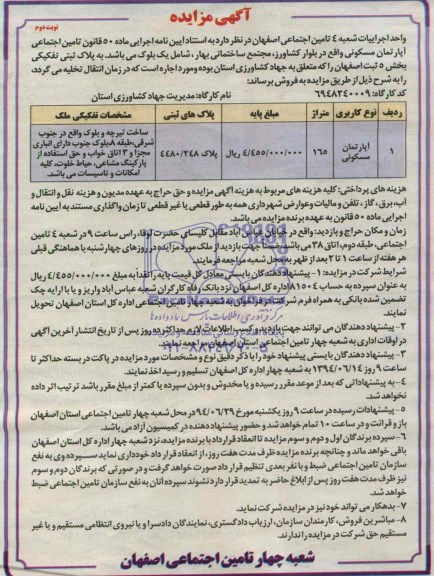 آگهی مزایده
نوبت دوم
واحد اجراییات شعبه ۴ تامین اجتماعی اصفهان در نظر دارد به استناد آیین نامه اجرایی ماده ۵۰ قانون تامین اجتماعی
آپارتمان مسکونی واقع در بلوار کشاورز، مجتمع ساختمانی بهار، شامل یک بلوک می باشد. به پلاک ثبتی تفکیکی
بخش ۵ ثبت اصفهان را که متعلق به جهاد کشاورزی استان بوده و مورد اجاره است که در زمان انتقال تخلیه می گردد،
را به شرح ذیل از طریق مزایده به فروش برساند:
کد کارگاه: ۶۹۴۸۲۴۰۰۰۹ نام کارگاه: مدیریت جهاد کشاورزی استان
ردیف نوع کاربری متراژ مبلغ پایه پلاک های ثبتی مشخصات تفکیکی ملک
۱ آپارتمان مسکونی ۱۶۵ ۴/۴۵۵/۰۰۰/۰۰۰ ریال پلاک ۴۴۸۰/۲۴۸
ساخت تیرچه و بلوک واقع در جنوب
شرقی، طبقه ۸ بلوک جنوب دارای انباری
مجزا و ۳ اتاق خواب و حق استفاده از
پارکینگ مشاعی، حیاط خلوت، کلیه
امکانات و تاسیسات می باشد.
هزینه های پرداختی: کلیه هزینه های مربوط به هزینه آگهی مزایده و حق حراج به عهده مدیون و هزینه نقل و انتقال و
آب، برق، گاز، تلفن و مالیات و عوارض شهرداری همه به طور قطعی یا غیر قطعی تا زمان واگذاری مستند به آیین نامه
اجرایی ماده ۵۰ قانون به عهده برنده مزایده می باشد.
زمان و مکان حراج و بازدید: واقع در خیابان شریف آباد مقابل کلیسای حضرت لوقا، راس ساعت ۹ در شعبه ۴ تامین
اجتماعی، طبقه دوم، اتاق ۳۸ می باشد. ضمنا جهت بازدید از ملک مورد مزایده در روزهای چهارشنبه با هماهنگی قبلی
هر هفته از ساعت ۱ تا ۲ بعد از ظهر به محل شعبه مراجعه فرمایند.
شرایط شرکت در مزایده: ۱- پیشنهاد دهندگان بایستی معادل کل قیمت پایه را نقدا به مبلغ ۴/۴۵۵/۰۰۰/۰۰۰ ریال
به عنوان سپرده به حساب ۸۱۵۰۴ اداره کل اصفهان نزد بانک رفاه کارگران شعبه عباس آباد واریز و یا با ارایه چک
تضمین شده بانکی به همراه فرم شرکت در فراخوان به شعبه چهار تامین اجتماعی اداره کل استان اصفهان تحویل
نمایند.
۲- پیشنهاد دهندگان می توانند جهت بازدید و کسب اطلاعات لازم حداکثر ده روز پس از تاریخ انتشار آخرین آگهی
در اوقات اداری به شعبه چهار تامین اجتماعی استان اصفهان مراجعه نمایند.
۳- پیشنهاد دهندگان بایستی پیشنهاد خود را با ذکر دقیق نوع و مشخصات مورد مزایده در پاکت در بسته حداکثر تا
ساعت ۹ روز ۱۳۹۴/۰۶/۱۴ به شعبه چهار اداره کل اصفهان تسلیم و رسید اخذ نمایند.
۴- به پیشنهاداتی که بعد از موعد مقرر رسیده و یا مخدوش و بدون سپرده یا کمتر از مبلغ مقرر باشد ترتیب اثر داده
نخواهد شد.
۵- پیشنهادات رسیده در ساعت ۹ روز یکشنبه مورخ ۹۴/۰۶/۲۹ در محل شعبه چهار تامین اجتماعی استان اصفهان
باز و قرائت و در ساعت ۱۰ تمام خواهد شد و حضور پیشنهاد دهنده در کمیسیون آزاد می باشد.
۶- سپرده برندگان اول و دوم و سوم مزایده تا انعقاد قرارداد با برنده مزایده، نزد شعبه چهار اداره کل استان اصفهان
باقی خواهد ماند و چنانچه برنده مزایده ظرف مدت هفت روز، از انعقاد قرار داد خودداری نماید سپرده وی به نفع
سازمان تامین اجتماعی ضبط و با نفر بعدی تنظیم قرار داد صورت خواهد گرفت و در صورتی که برندگان دوم و سوم
نیز ظرف مدت هفت روز پس از ابلاغ حاضر به تمدید قرار داد نشوند سپرده آنان به نفع سازمان تامین اجتماعی ضبط
خواهد شد.
۷- بدهکار می تواند خود نیز در مزایده شرکت نماید.
۸- مباشرین فروش، کارمندان سازمان، ارزیاب دادگستری، نمایندگان دادسرا و یا نیروی انتظامی مستقیم و یا غیر
مستقیم حق شرکت در مزایده را ندارند.
شعبه چهار تامین اجتماعی اصفهان